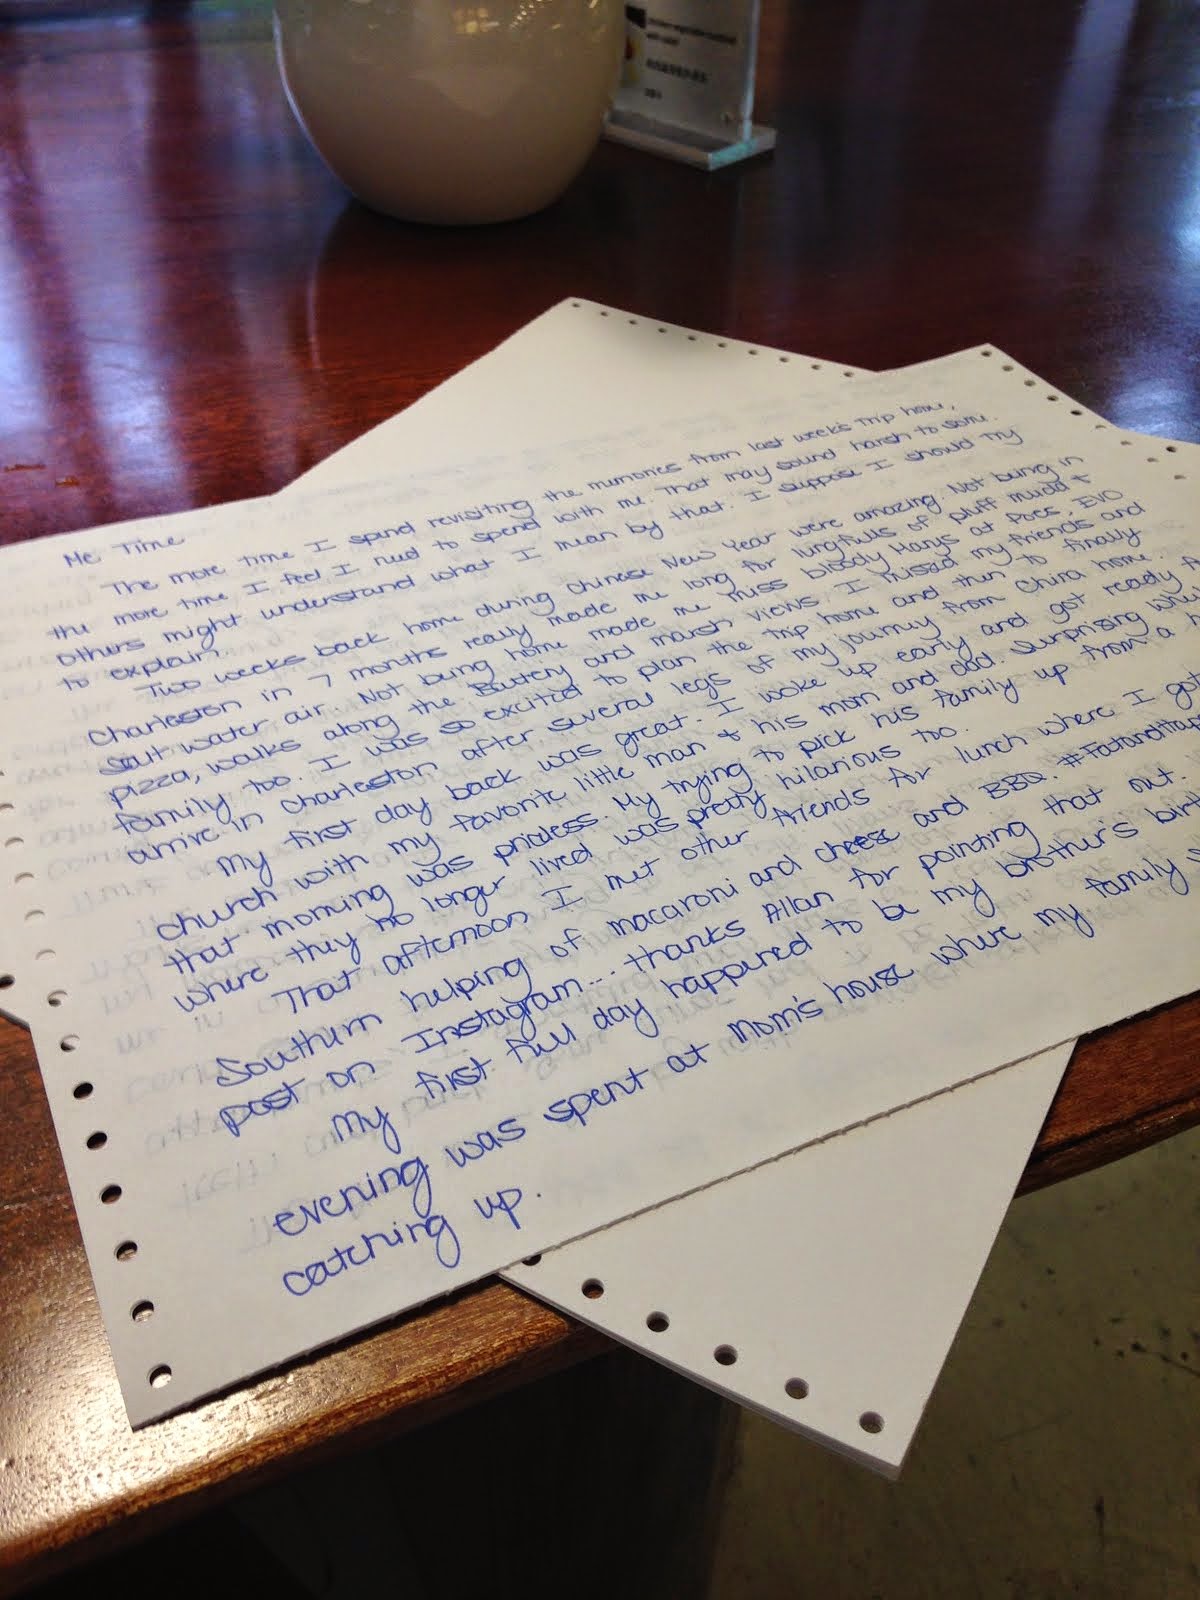 Me Time
The more time I spend revisiting the memories from last week's trip home,
the more time I feel I need to spend with me. That may sound harsh to some.
Others might understand what I mean by that. I suppose I should try
to explain.
Two weeks back home during Chinese New Year were amazing. Not being in
Charleston in 7 months really made me long for lungfulls of pluff mudd &
salt water air. Not being home made me miss bloody Marys at Poes, EVO
pizza, walks along the Battery and marsh views. I missed my friends and
family too. I was so excited to plan the trip home and then to finally
arrive in Charleston after several legs of my journey from China home.
My first day back was great. I woke up early and got ready
church with my favorite little man & his mom and dad. Surprising
that morning was priceless. My trying to pick his family up from a
where they no longer lived was pretty hilarious too.
That afternoon I met other friends for lunch where I got
Southern helping of macaroni and cheese and BBQ.
post on Instagram... thanks Allan for pointing that out.
My first full day happened to be my brother's
evening was spent at Mom's house where my family
catching up.